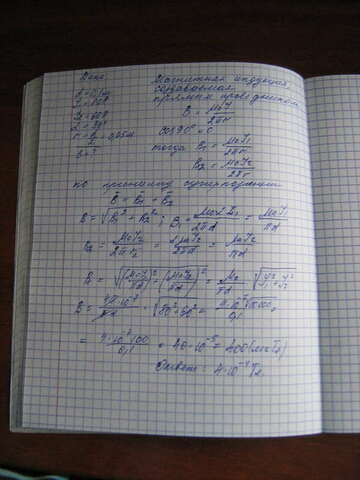 Дано
d = 0,1 м
I₁ = 80 А
I₂ = 60 А
α = 90°
r = d/2 = 0,05 м
B = ?
Магнитная индукция,
создаваемая
прямым проводником
B = μ₀I / 2πr
cos 90° = 0
тогда B₁ = μ₀I₁ / 2πr
B₂ = μ₀I₂ / 2πr
по принципу суперпозиции
B = B₁ + B₂
B = √(B₁² + B₂²) ; B₁ = μ₀2I₁ / 2πd = μ₀I₁ / πd
B₂ = μ₀I₂ / 2πr₂ = 2μ₀I₂ / 2πd = μ₀I₂ / πd
B = √((μ₀I₁ / πd)² + (μ₀I₂ / πd)²) = μ₀ / πd √(I₁² + I₂²)
= 4·10⁻⁷·100 / 0,1 = 40·10⁻⁵ = 400 (мкТл)
Ответ: 4·10⁻⁴ Тл